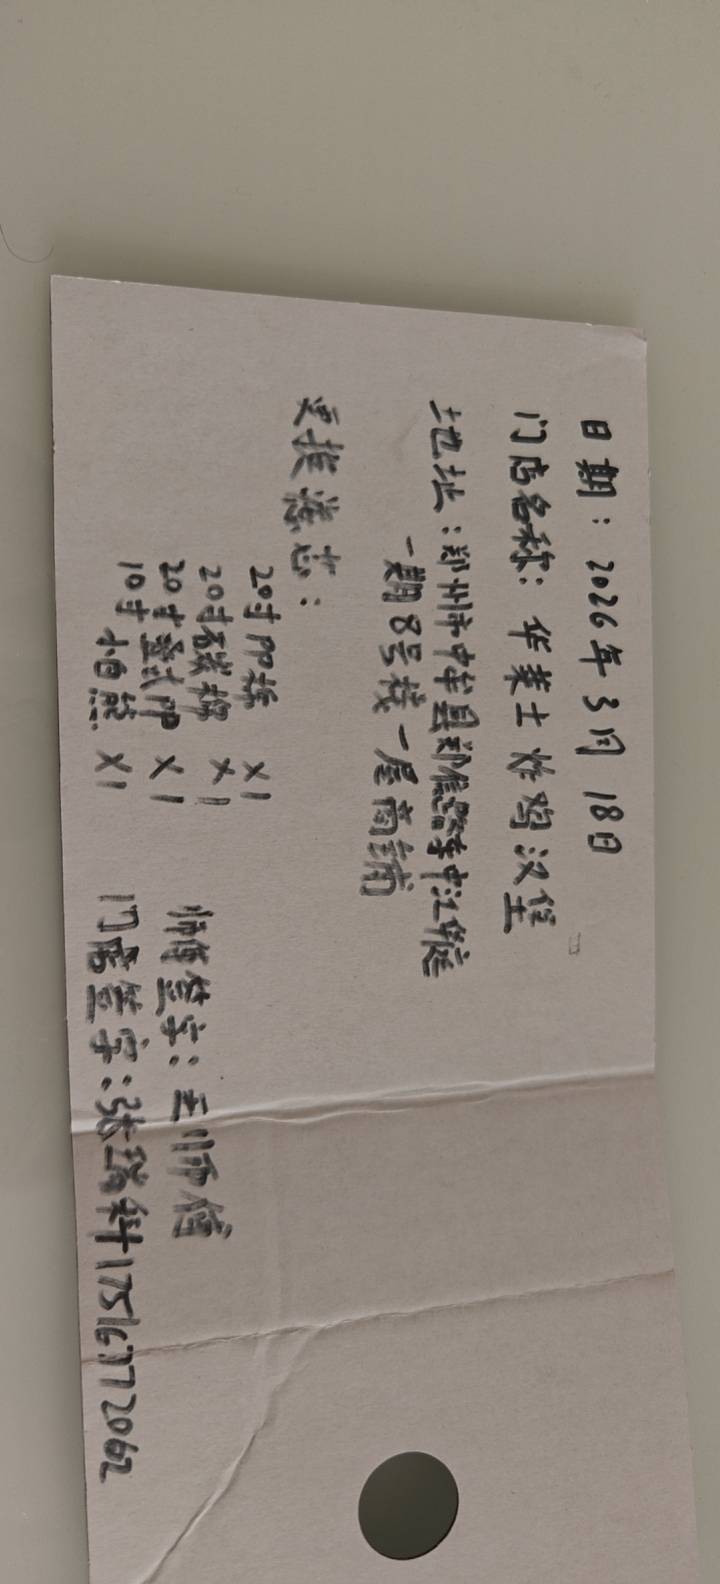 日期：2026年3月18日
门店名称：华莱士炸鸡汉堡
地址：郑州市中牟县郑庵路李中江华庭
一期8号栈一层商铺
更换滤芯：
20寸PP棉 X1
20寸碳棉 X1
20寸叠式PP X1
10寸 X1
师傅签字：王师傅
门店签字：张瑞科17516772062